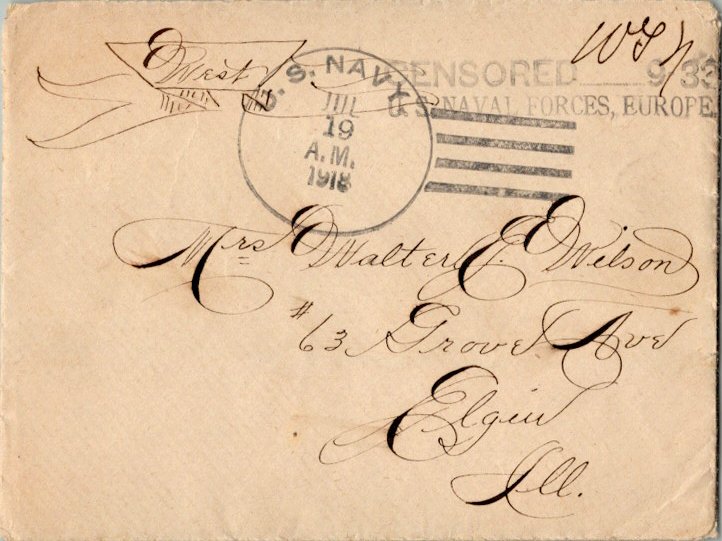 West
U. S. NAVY
JUL
19
A.M.
1918
CENSORED 933
U. S. NAVAL FORCES, EUROPE
Mrs Walter J. Wilson
#63 Grove Ave
Elgin
Ill.